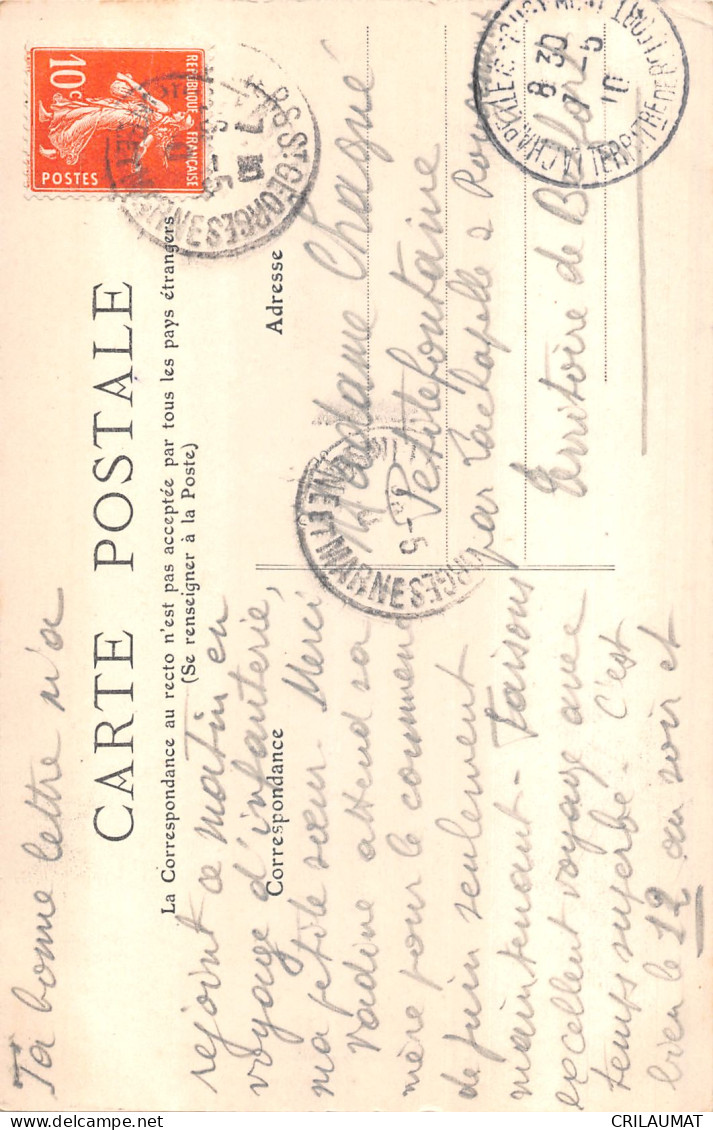 Ta bonne lettre m'a
CARTE POSTALE
La Correspondance au recto n'est pas acceptée par tous les pays étrangers
(Se renseigner à la Poste)
Correspondance
Adresse
rejoint ce matin en
voyage d'infanterie,
ma petite sœur. Merci
attend sa
mère pour le commenc
de juin seulement
maintenant - Faisons
excellent voyage avec
temps superbe. C'est
bien le 12 au soir et
Madame Chagué
Petitefontaine
par Lachapelle s Rougemont
Territoire de Belfort
10c
REPUBLIQUE FRANÇAISE
POSTES
ST GEORGES
8 30
7 -5
10
TERRIT RE DE BELFORT
NE ET MARNE
CRILAUMAT